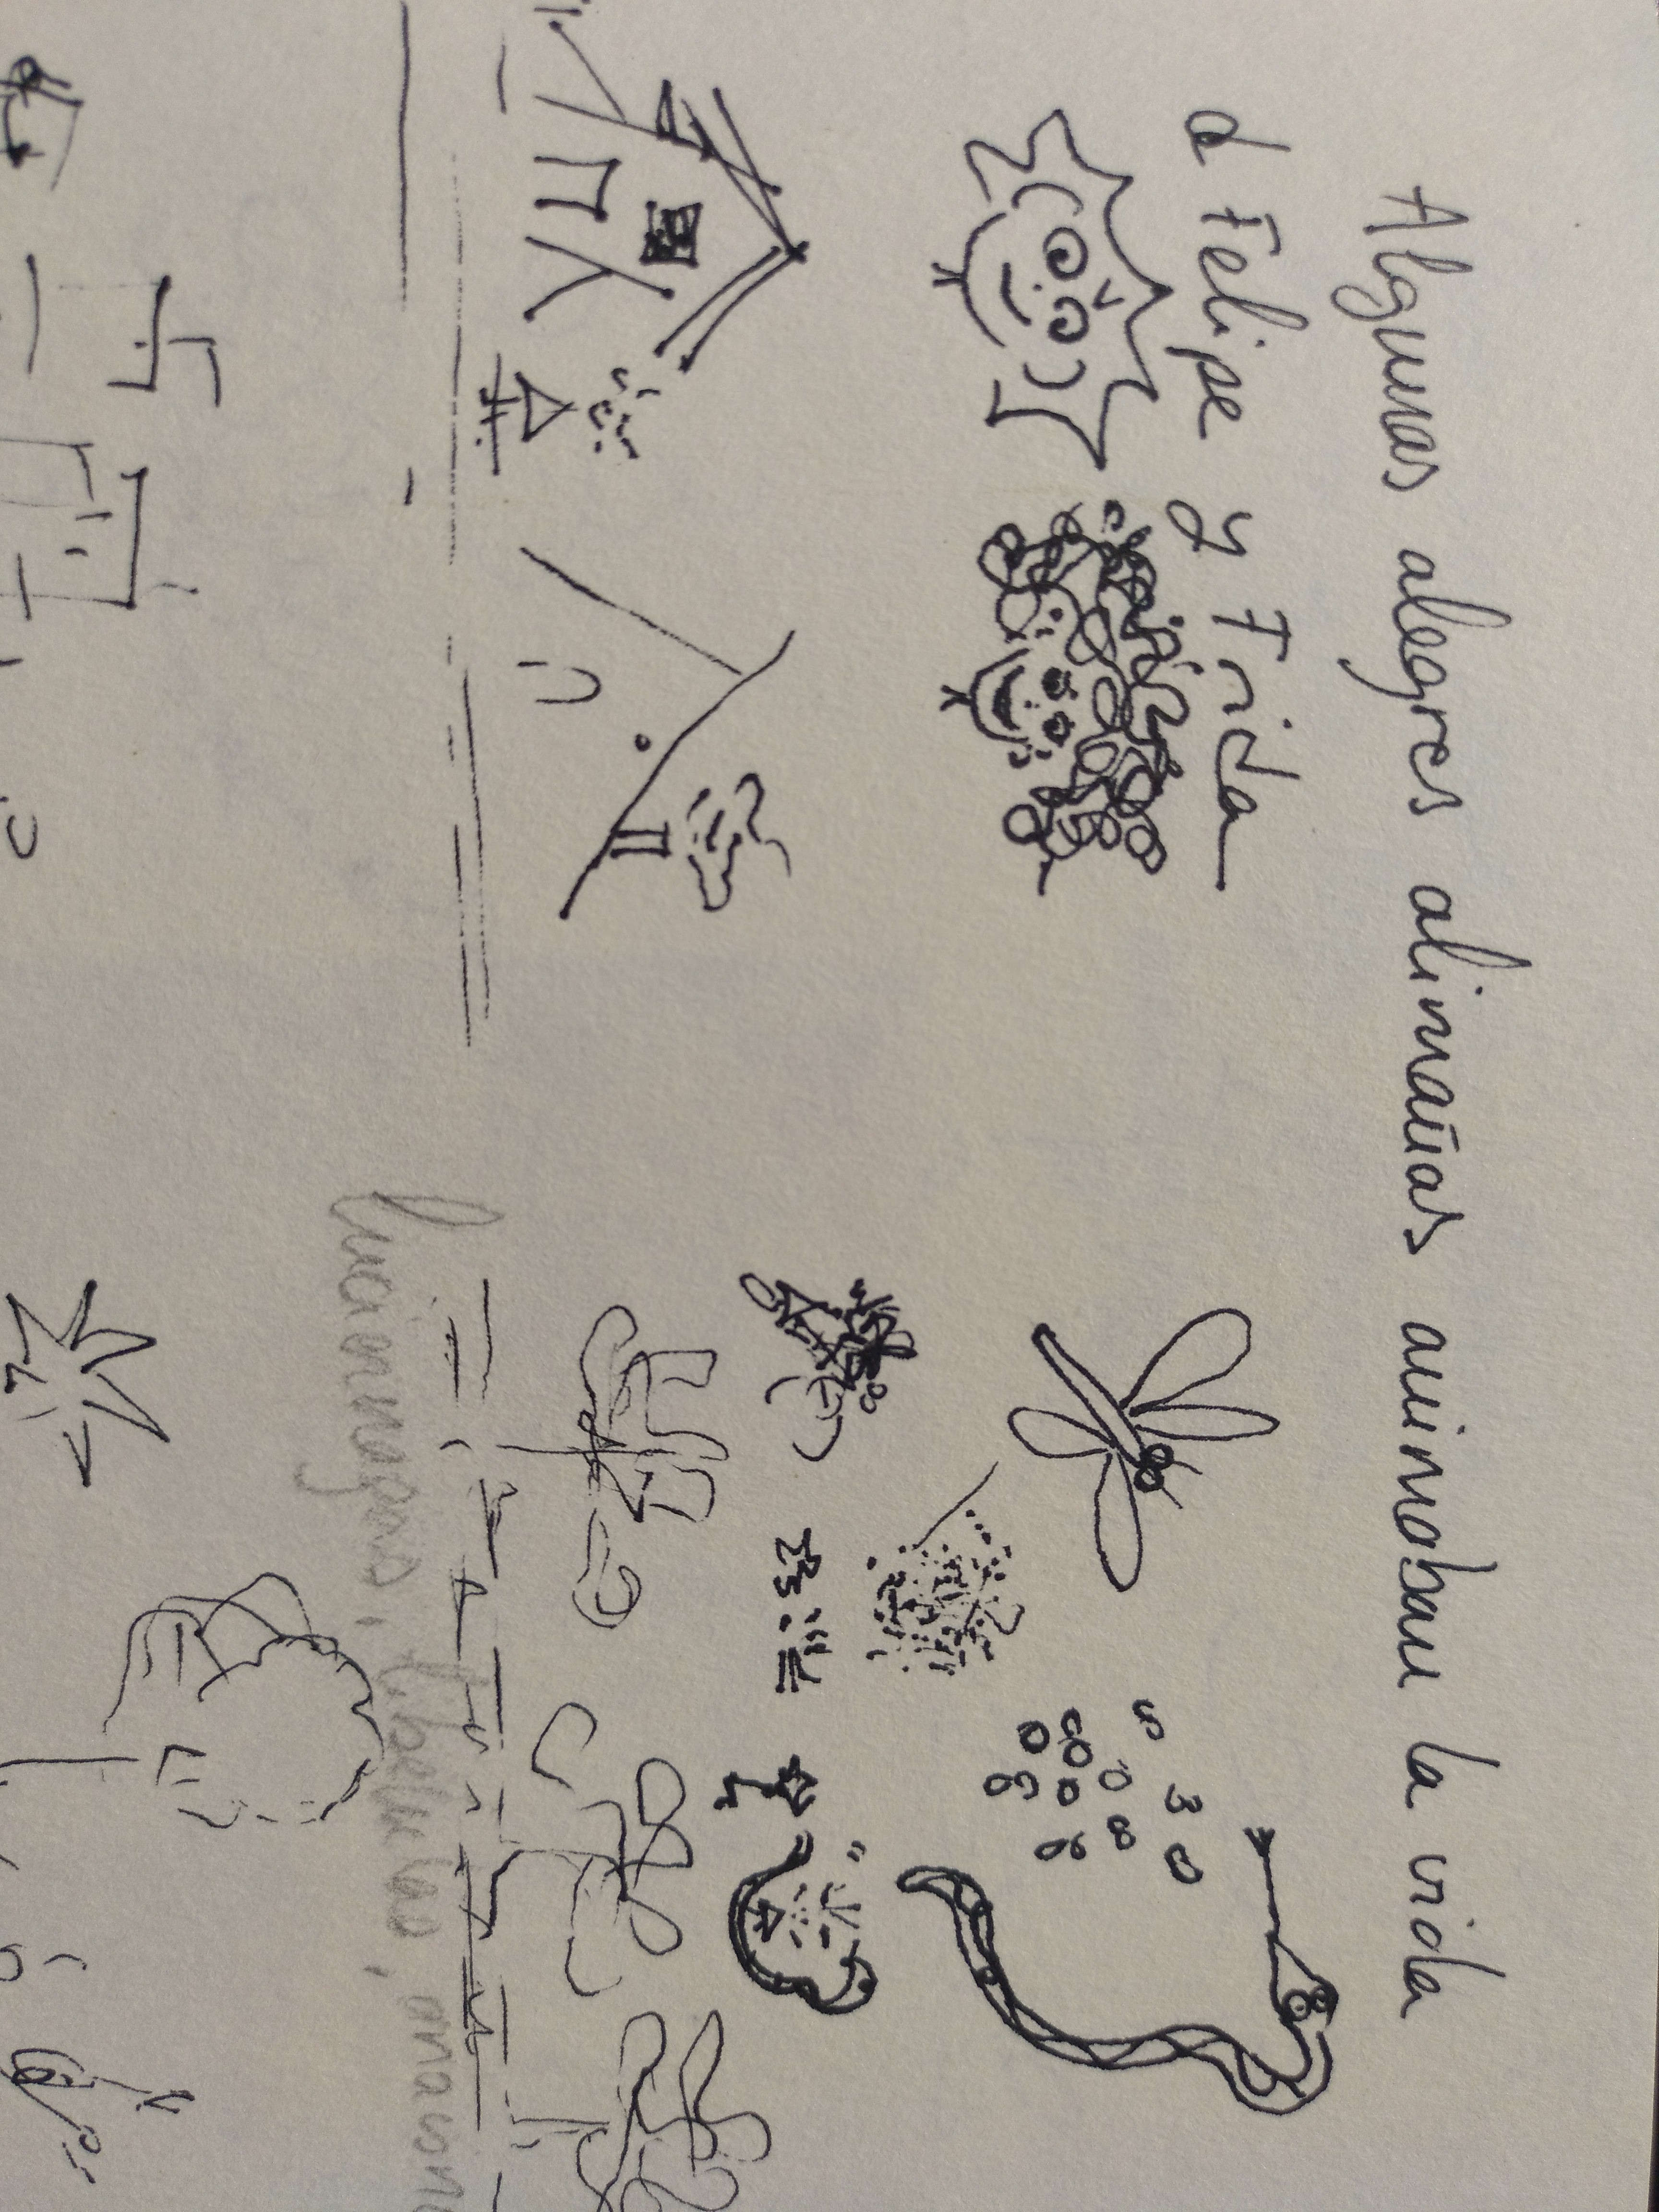 Algunas alegres alimañas animaban la vida
d Felipe y Frida
luciérnagas, libelulas, anacon